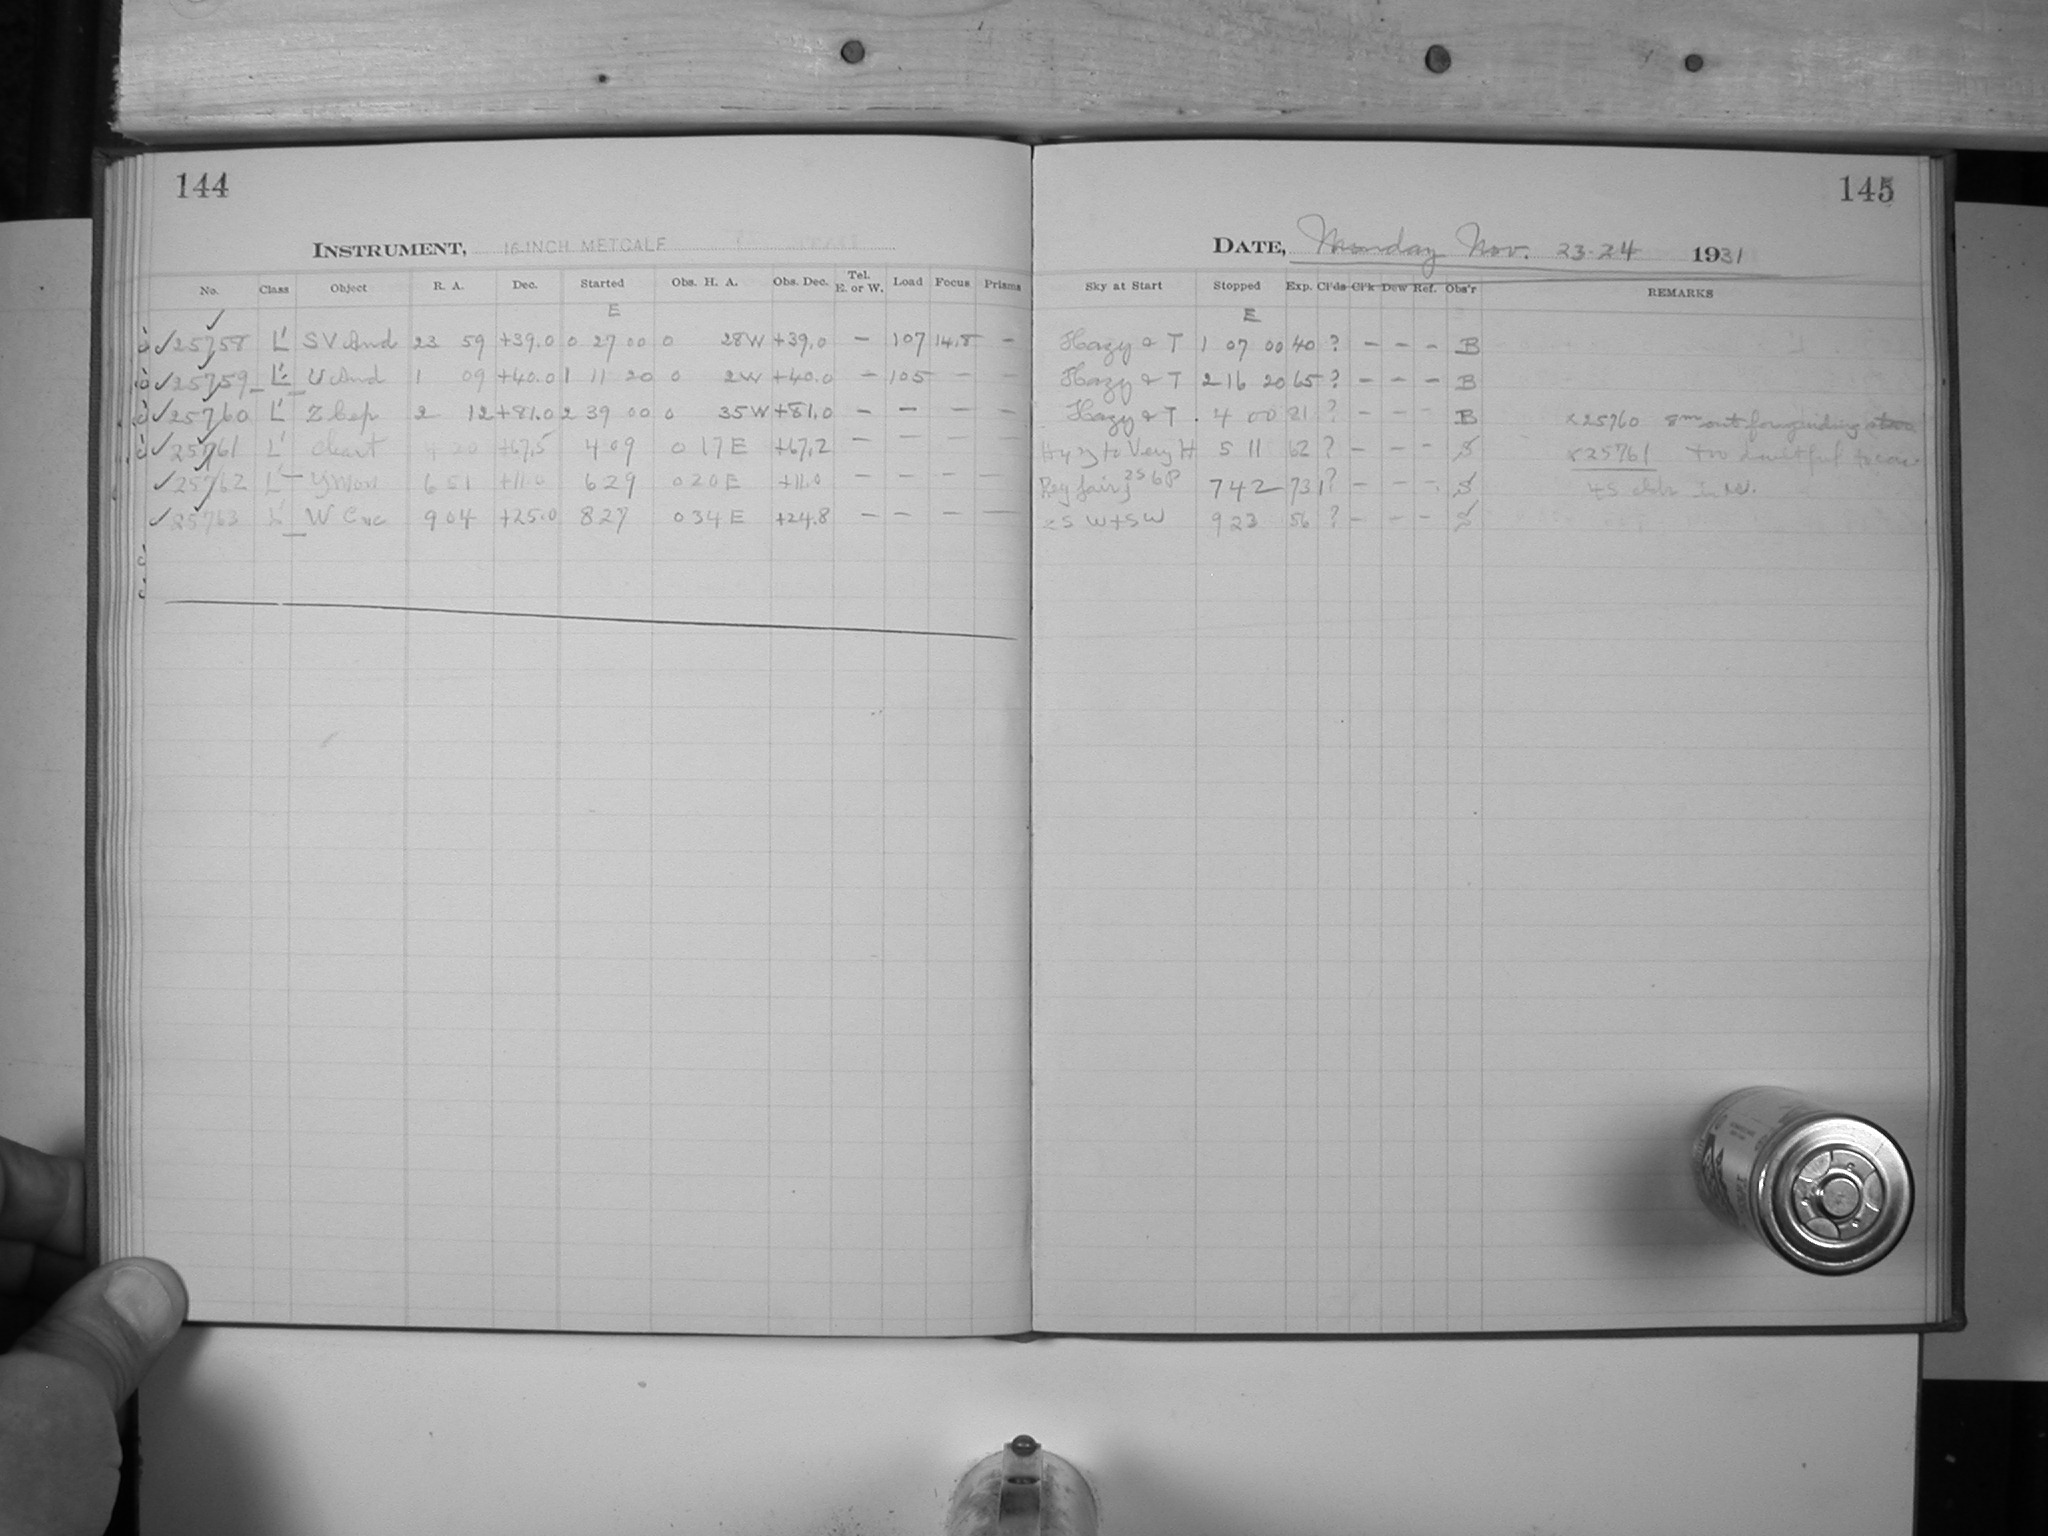 144
INSTRUMENT, 16-INCH METCALF
No. Class Object R. A. Dec. Started Obs. H. A. Obs. Dec. Tel. E. or W. Load Focus Prisms
E
✓25758 L' SV And 23 59 +39.0 0 27 00 0 28W +39.0 — 107 14.8 —
✓25759 L' U And 1 09 +40.0 1 11 20 0 2W +40.0 — 105 — —
✓25760 L' Z Cep 2 12 +81.0 2 39 00 0 35W +81.0 — — — —
✓25761 L' chart 4 20 +67.5 4 09 0 17 E +67.2 — — — —
✓25762 L' Y Mon 6 51 +11.0 6 29 0 20 E +11.0 — — — —
✓25763 L' W Cnc 9 04 +25.0 8 27 0 34 E +24.8 — — — —
145
DATE, Monday Nov. 23-24 1931
Sky at Start Stopped Exp. Cl'ds Cl'k Dew Ref. Obs'r REMARKS
E
Hazy & T 1 07 00 40 ? — — — B
Hazy & T 2 16 20 65 ? — — — B
Hazy & T. 4 00 81 ? — — — B x25760 8m out for winding
Hazy to Very H 5 11 62 ? — — — S x25761 Too doubtful
7 42 73 ? — — — S 45
W + SW 9 23 56 ? — — — S